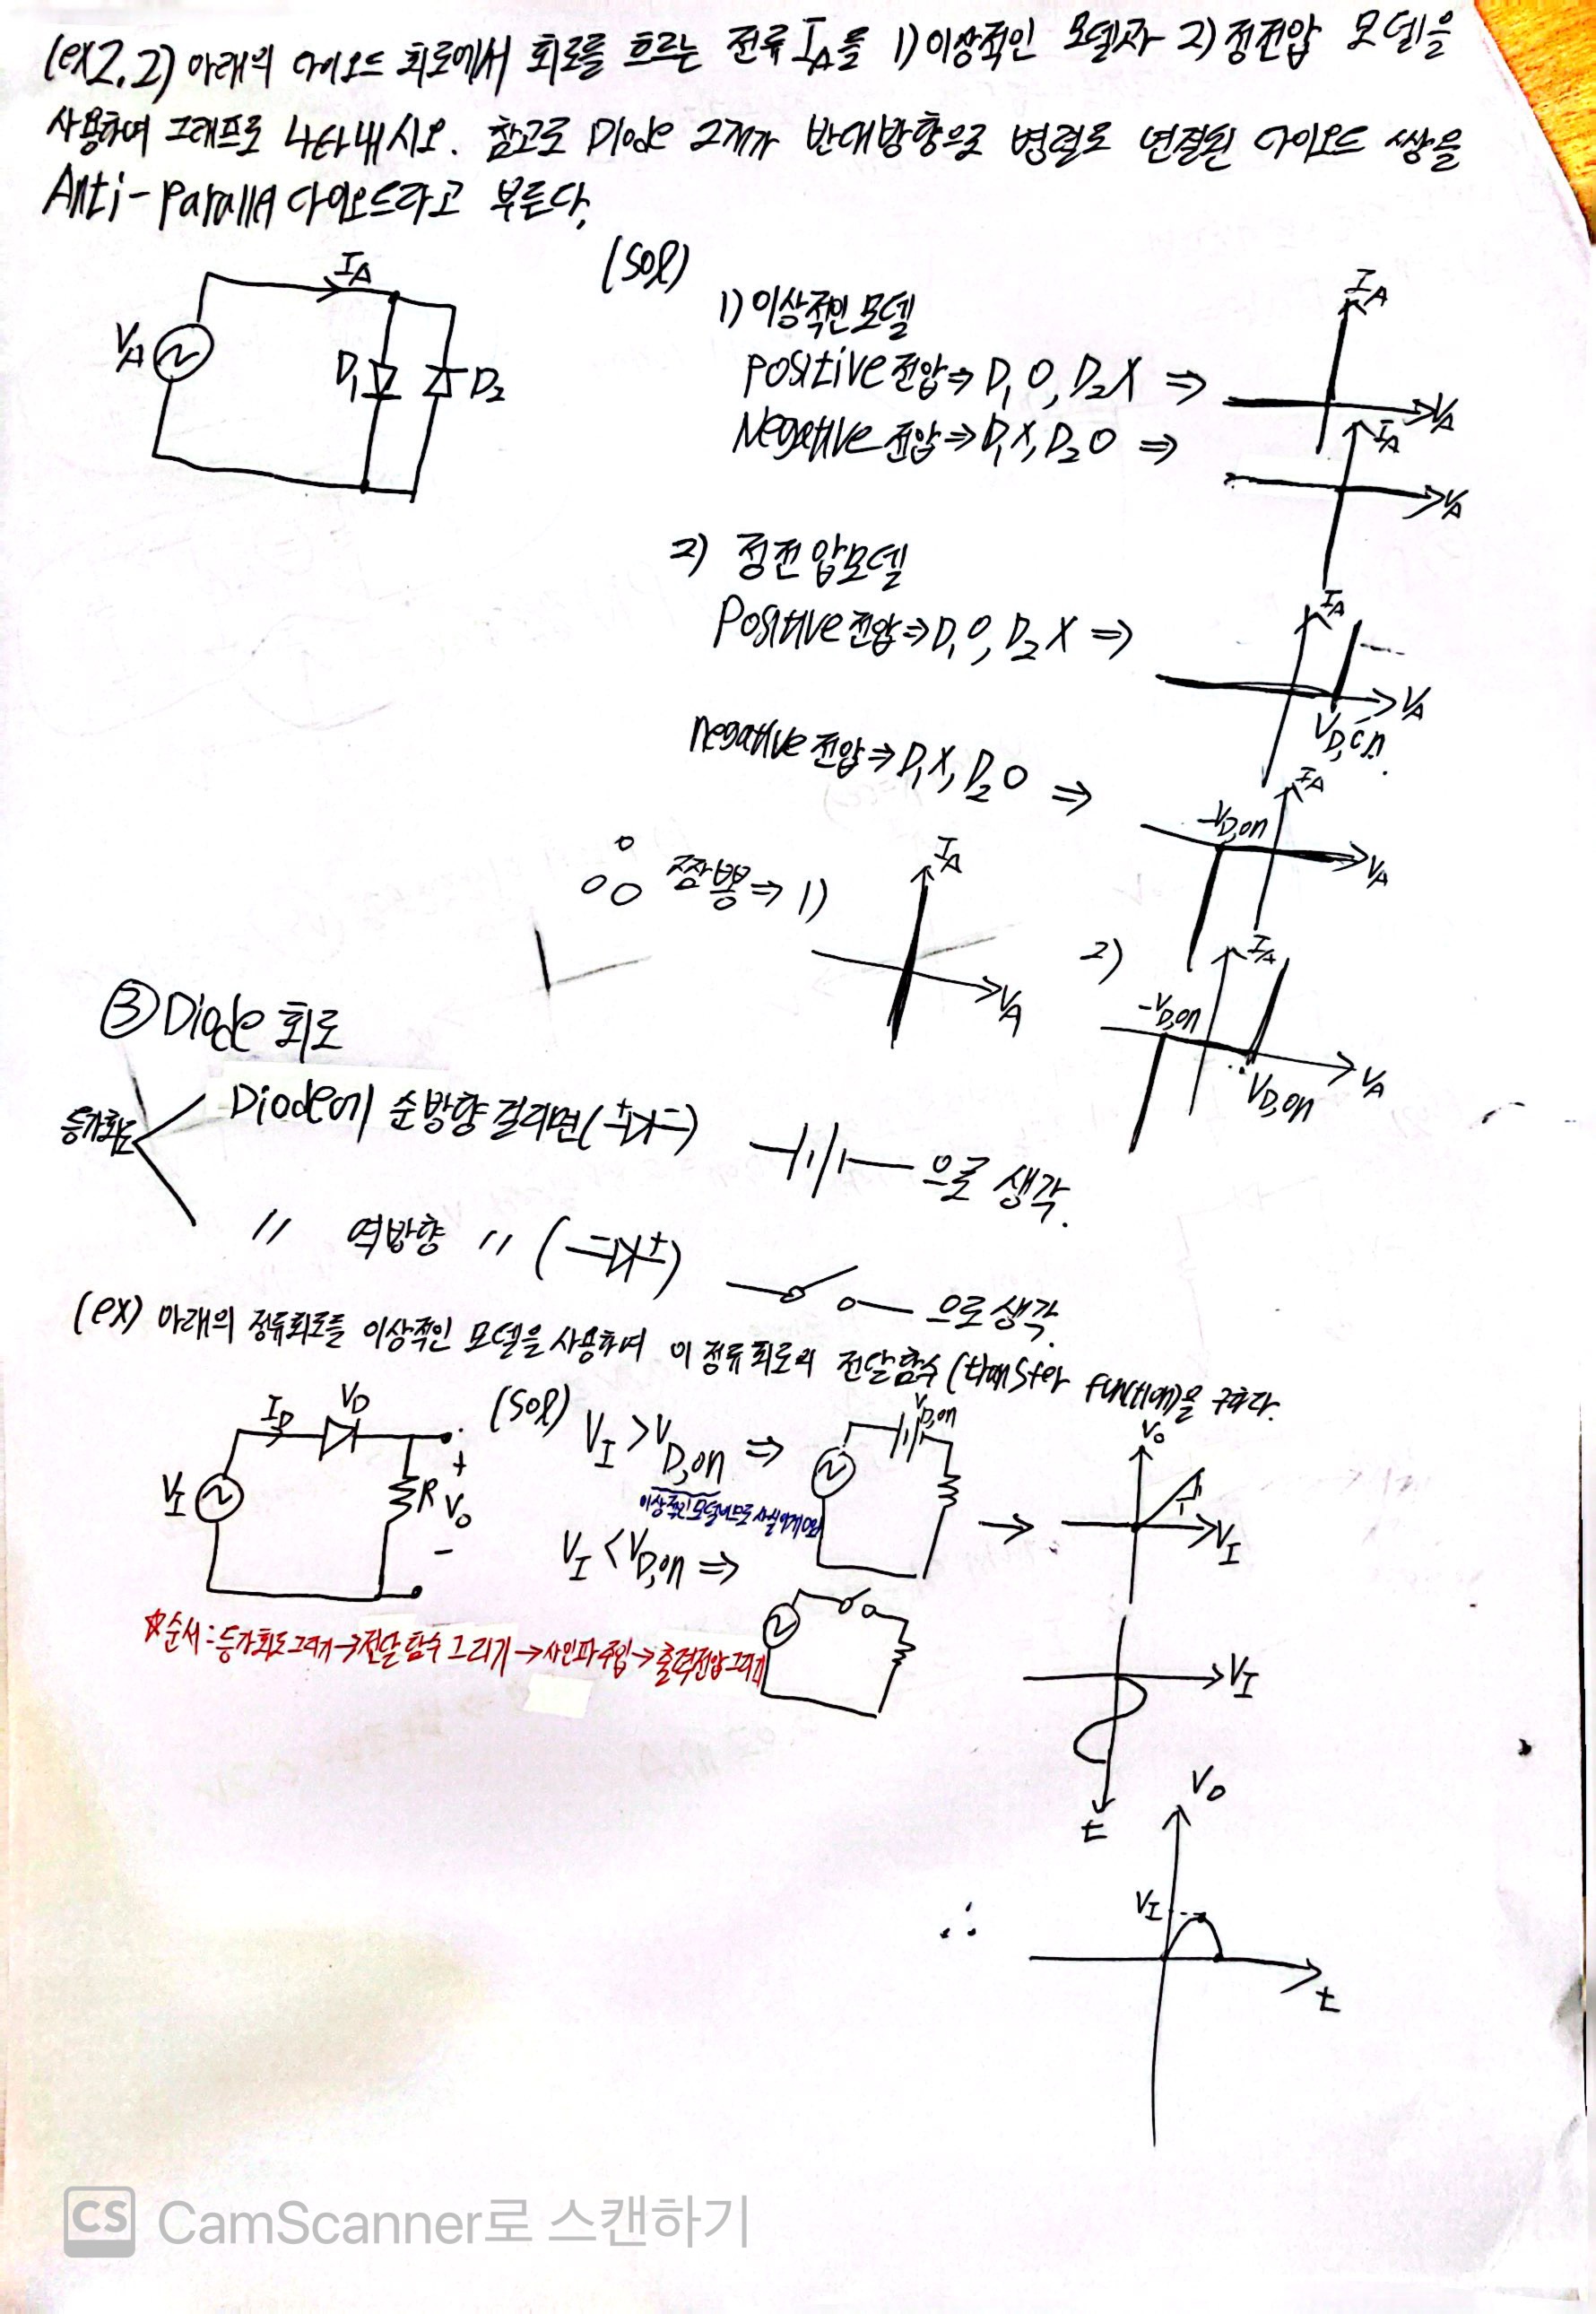 (ex2.2) 아래의 다이오드 회로에서 회로를 흐르는 전류 I_A를 1) 이상적인 모델과 2) 정전압 모델을
사용하여 그래프로 나타내시오. 참고로 Diode 2개가 반대방향으로 병렬로 연결된 다이오드 쌍을
Anti-parallel 다이오드라고 부른다.
(sol)
I_A
V_A
D_1
D_2
1) 이상적인 모델
positive 전압 ⇒ D_1 O, D_2 X ⇒
I_A
V_A
Negative 전압 ⇒ D_1 X, D_2 O ⇒
I_A
V_A
2) 정전압모델
Positive 전압 ⇒ D_1 O, D_2 X ⇒
I_A
V_A
V_D,on
negative 전압 ⇒ D_1 X, D_2 O ⇒
I_A
-V_D,on
V_A
짬뽕 ⇒ 1)
I_A
V_A
2)
I_A
-V_D,on
V_D,on
V_A
③ Diode 회로
등가회로
Diode에 순방향 걸리면 (+ -) 으로 생각.
〃 역방향 〃 (- +) 으로 생각.
(ex) 아래의 정류회로를 이상적인 모델을 사용하여 이 정류회로의 전달함수 (transfer function)을 구하라.
I_D
V_D
V_I
R
+
V_o
-
(sol) V_I > V_D,on ⇒
이상적인 모델이므로 사실 이게 0
V_D,on
→
V_o
1
V_I
V_I < V_D,on ⇒
☆순서 : 등가회로 그리기 → 전달함수 그리기 → 사인파 주입 → 출력전압 그리기
V_I
t
∴
V_o
V_I
t
CS CamScanner로 스캔하기